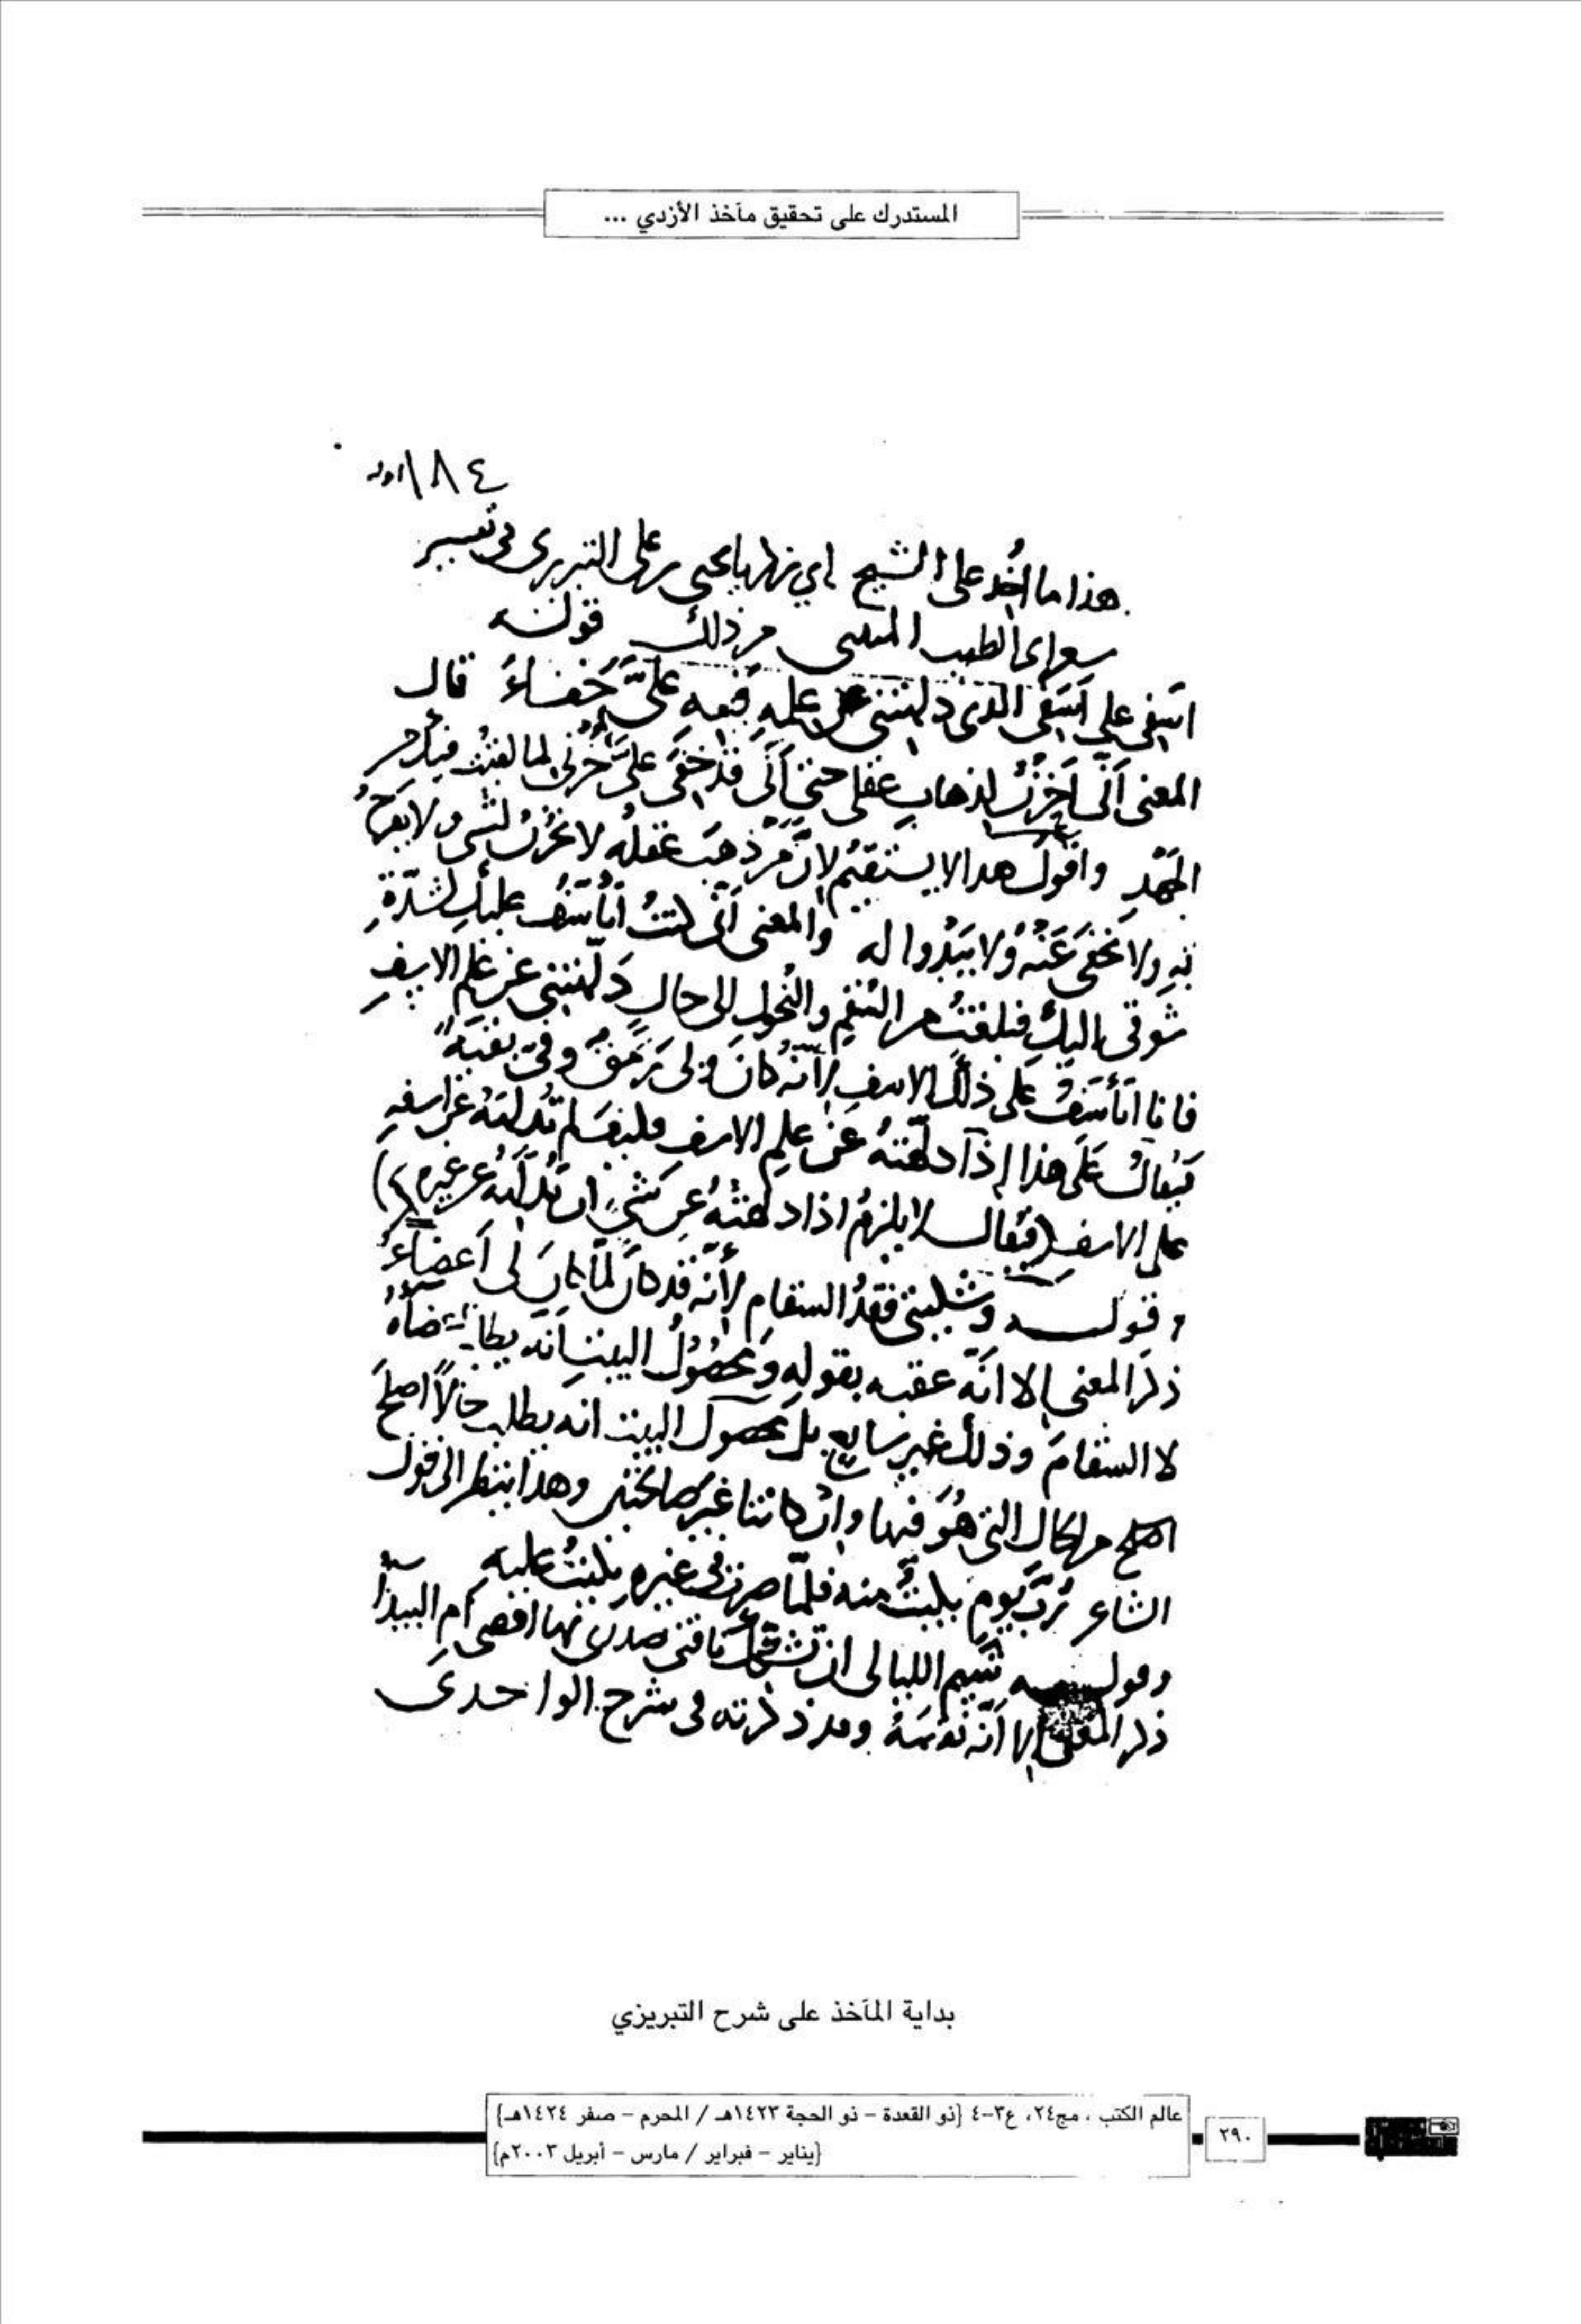 المستدرك على تحقيق مآخذ الأزدي ...
١٨٤
هذا ما أخذ على الشيخ ابي زكريا يحيى بن على التبريزى فى تفسير
شعر ابى الطيب المتنبى من ذلك قوله
اسفى على اسفى الذى دلهتنى عن علمه فبه علىّ خفاء قال
المعنى انى احزن لذهاب عقلى حتى انى قد خفى علىّ حزنى لما لقيت فيك من
الجهد واقول هذا لا يستقيم لان من ذهب عقله لا يحزن لشى ولا يفرح
به ولا يخفى عنه ولا يبدوا له والمعنى انى كنت اتأسف عليك لشدة
شوقى اليك فبلغت من السقم والنحول الى حال دلهتنى عن علم الاسف
فانا اتأسف على ذلك الاسف لأنه كان ولى رمق وفىّ بقية
فيقال على هذا اذا دلهته عن علم الاسف فكيف لم تدلهه عن اسفه
على الاسف فيقال لا يلزم اذا دلهته عن شىء ان تدلهه عن غيره
وقوله وشكيتى فقد السقام لأنه قد كان لما كان لى اعضاء
ذكر المعنى الا انه عقبه بقوله ومحصول البيت انه يطلب اعضاءه
لا السقام وذلك غير سايغ بل محصول البيت انه يطلب حالاً اصلح
من الحال التى هو فيها وان كانتا غير صالحتين وهذا ينظر الى قول
الشاعر رب يوم بكيت منه فلمّا صرت فى غيره بكيت عليه
وقوله شيم الليالى ان تشكك ناقتى صدرى بها افضى أم البيداء
ذكر المعنى الا انه وقد ذكرته فى شرح الواحدى
بداية المآخذ على شرح التبريزي
عالم الكتب ، مج٢٤، ع٣-٤ {ذو القعدة - ذو الحجة ١٤٢٣هـ / المحرم - صفر ١٤٢٤هـ}
{يناير - فبراير / مارس - أبريل ٢٠٠٣م}
٢٩٠